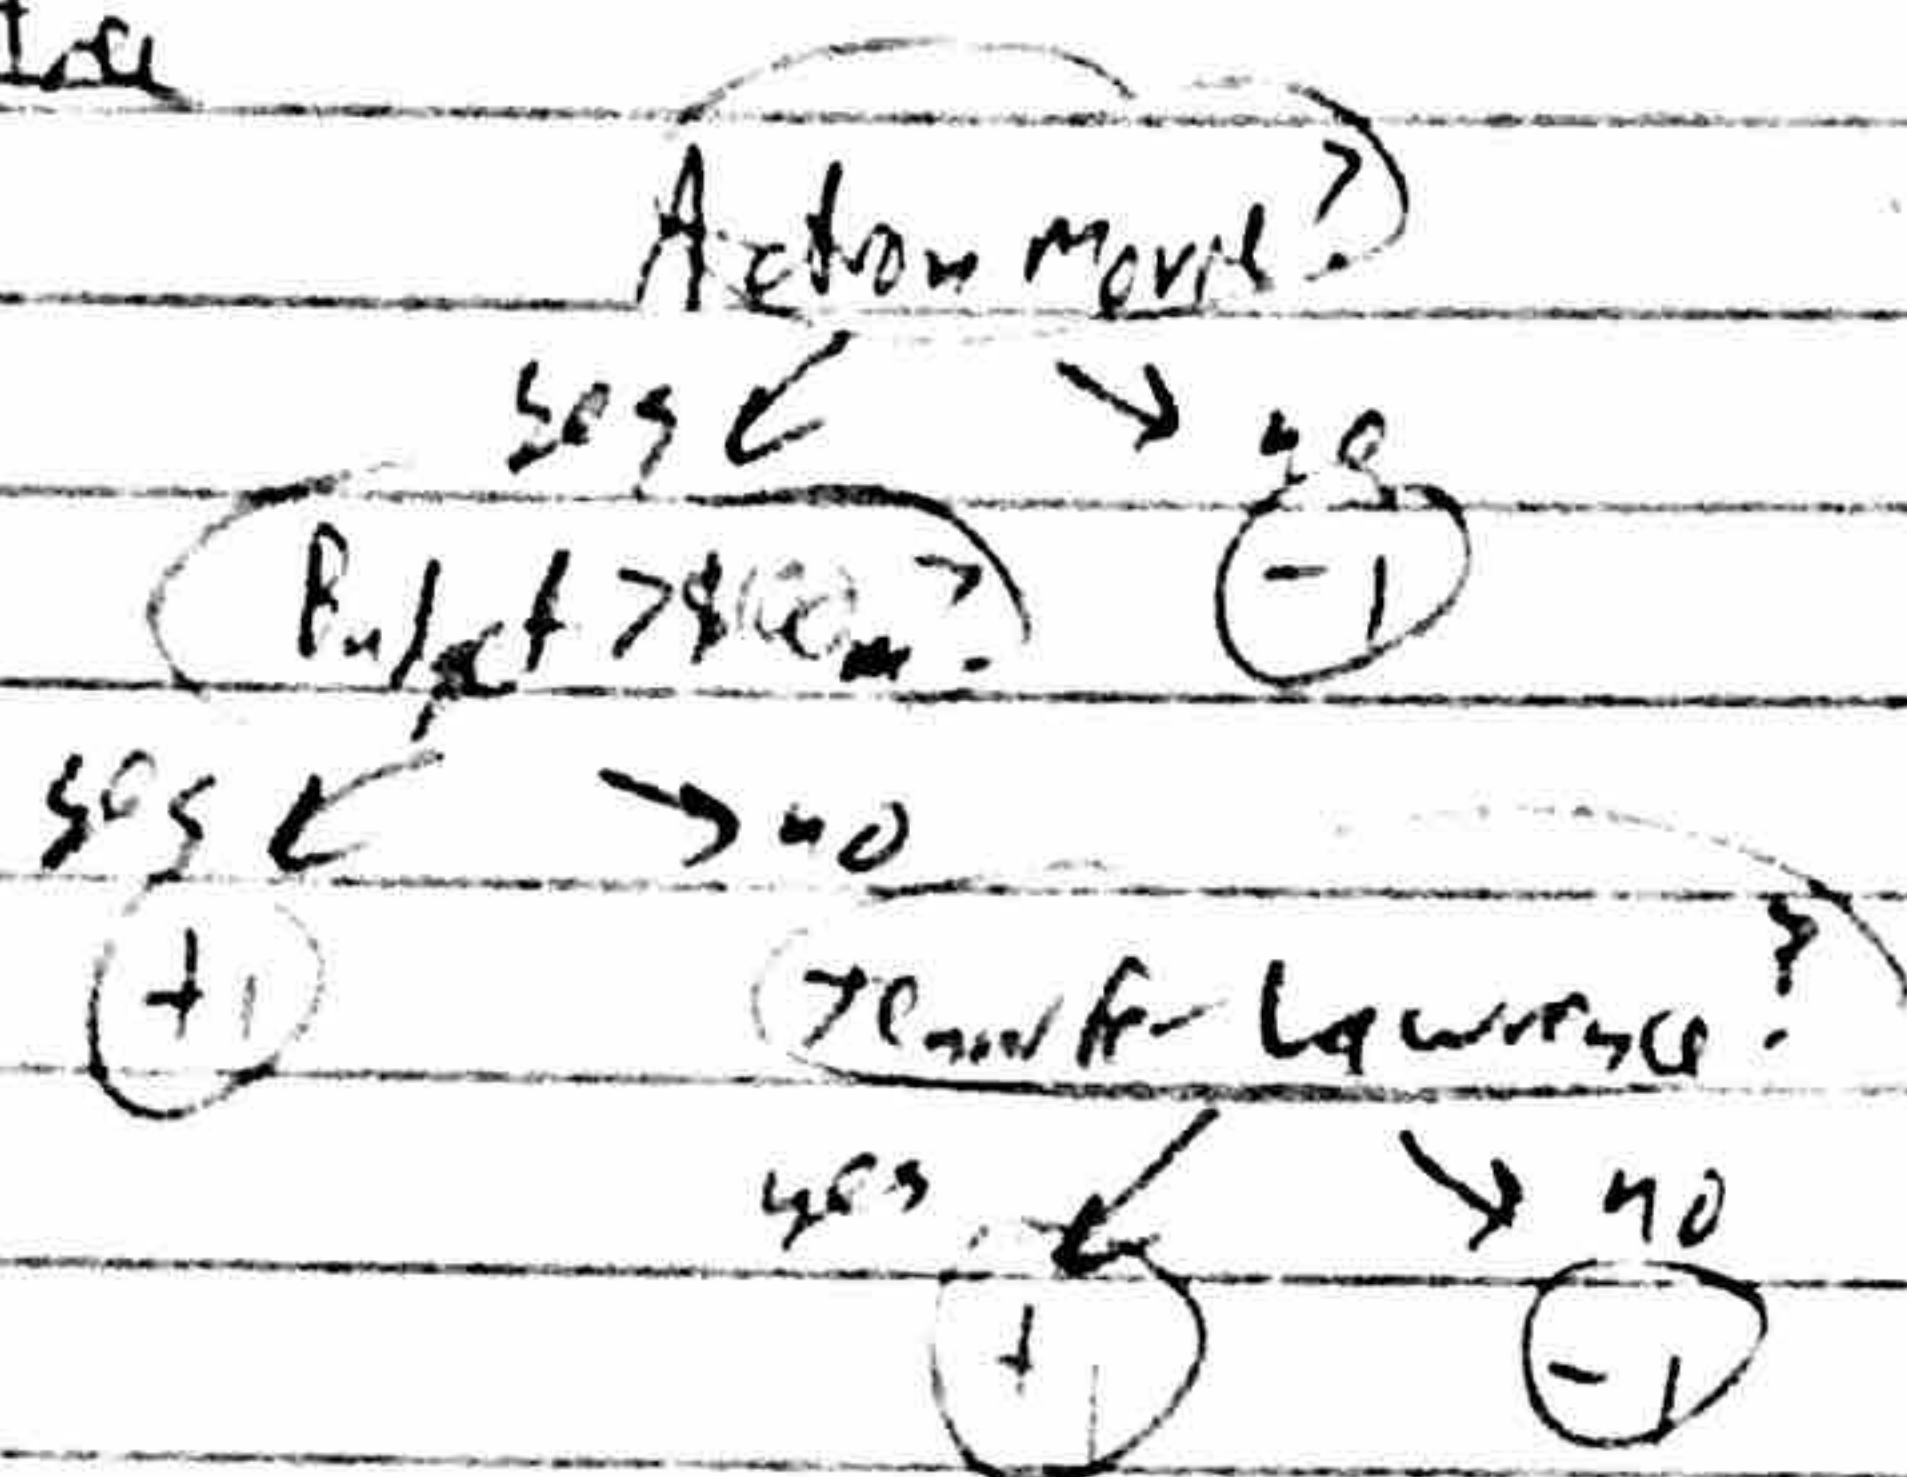 Action Movie?
yes no
Budget >$100m? -1
yes no
+1 Jennifer Lawrence?
yes no
+1 -1